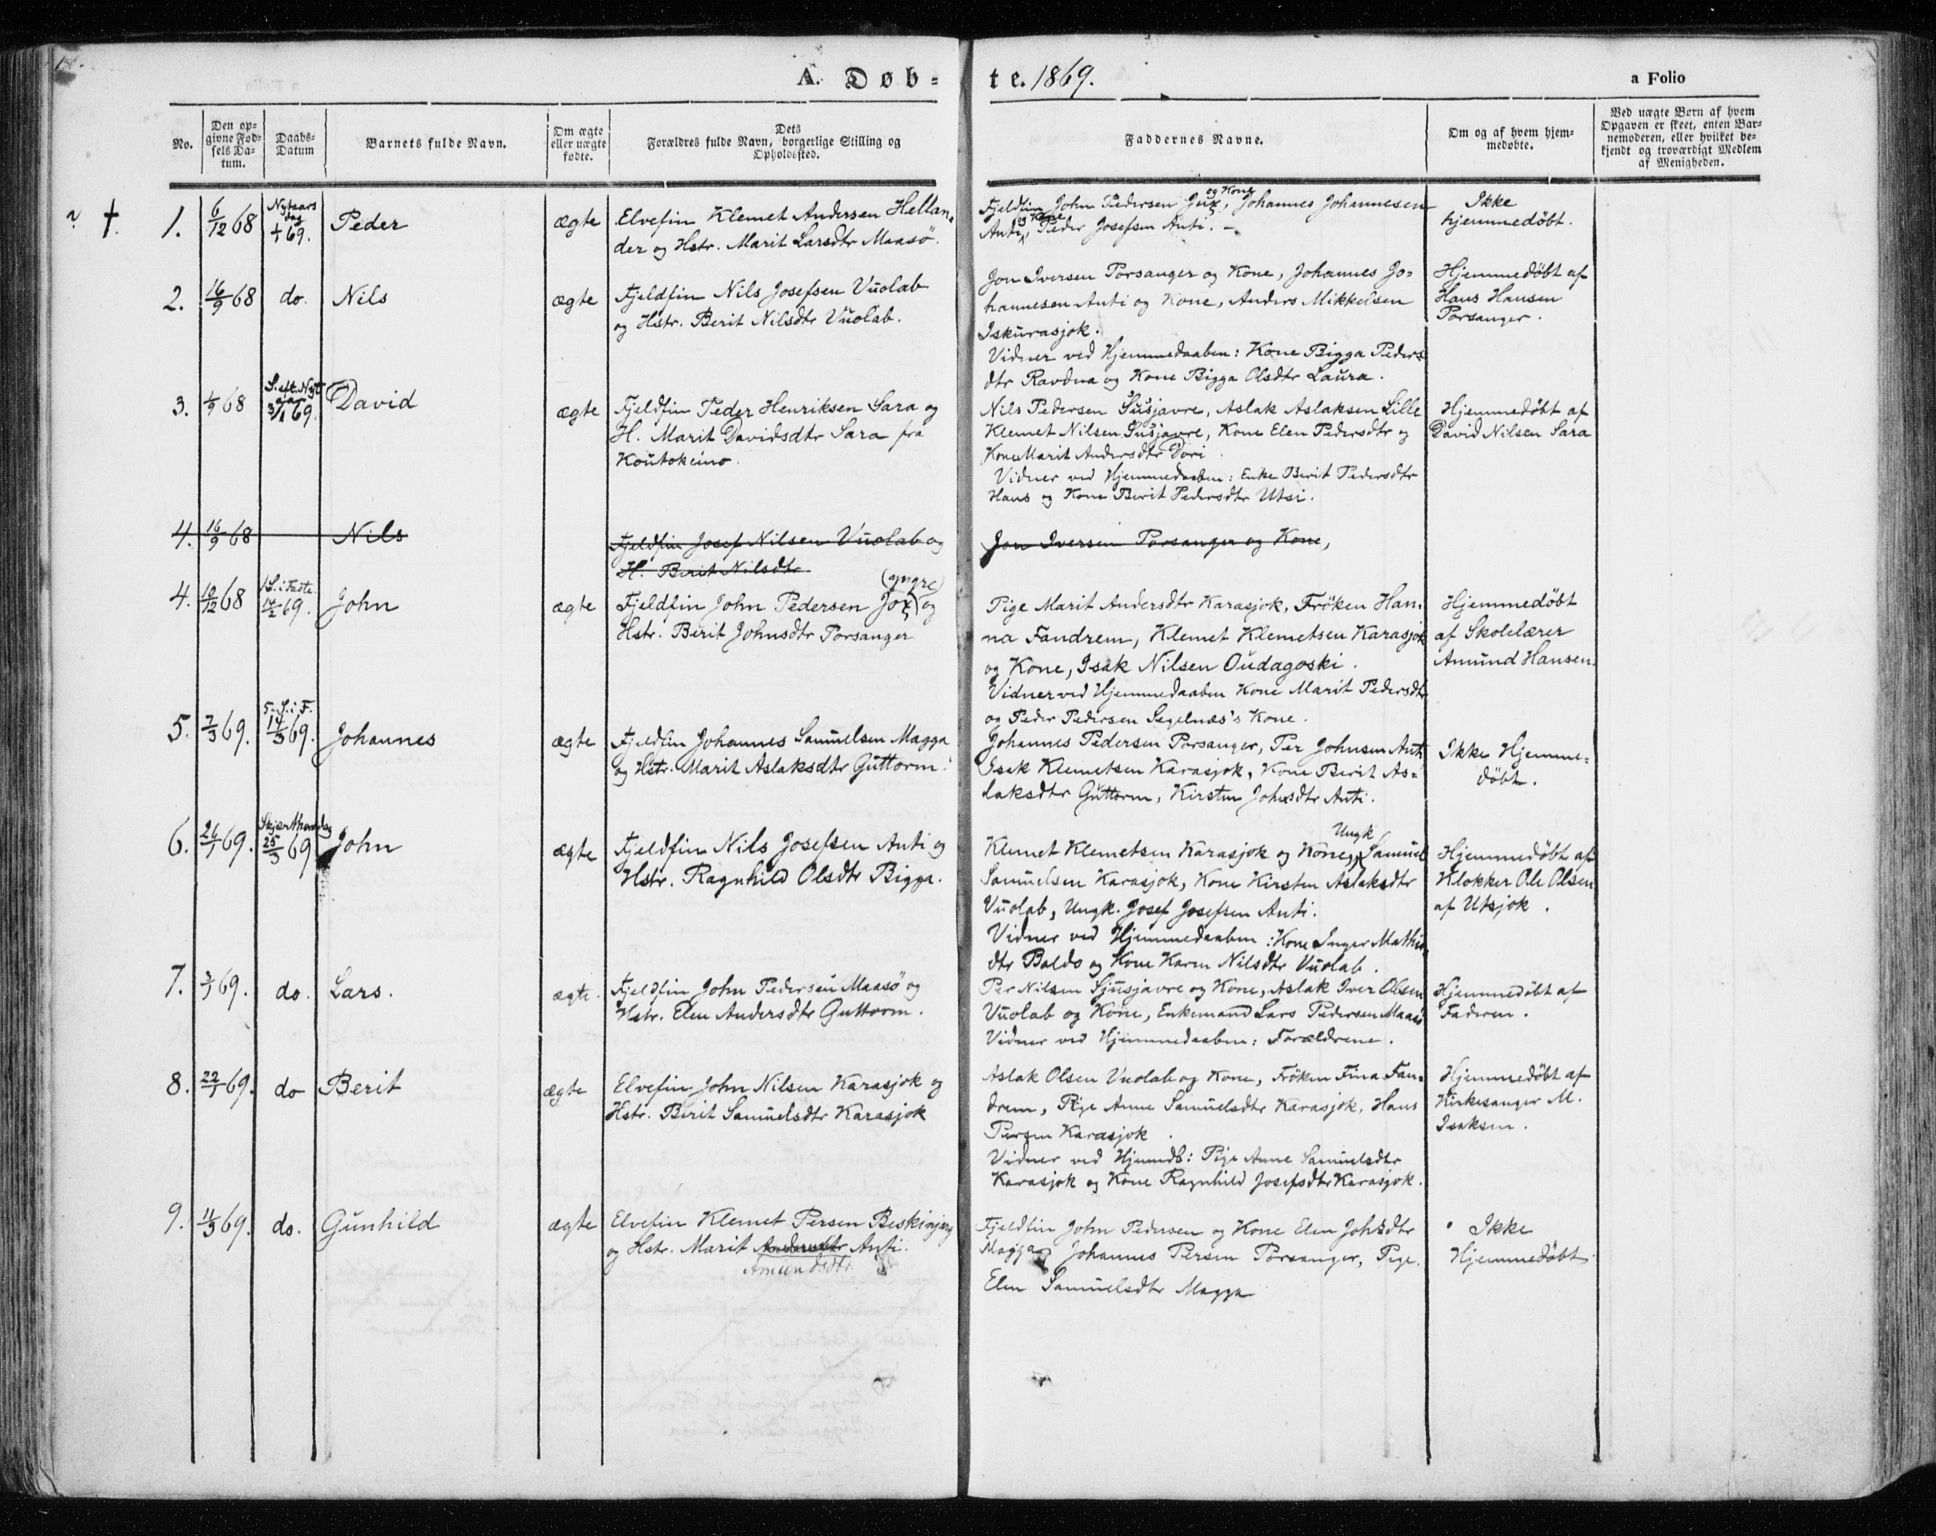 A. Døb-
te. 1869.
a Folio
No.
Den op-
givne Fød-
sels Da-
tum.
Daabs-
Datum
Barnets fulde Navn.
Om ægte
eller uægte
fødte.
Dets
Forældres fulde Navn, borgerlige Stilling og
Opholdssted.
Faddernes Navne.
Om og af hvem hjem-
medøbte.
Ved uægte Børn af hvem
Opgaven er skeet, enten Bar-
nemoderen, eller hvilket be-
kjendt og troværdigt Medlem
af Menigheden.
†. 1. 6/12 68 Nytaars
dag
69. Peder ægte Elvefin Klemet Andersen Hellan-
der og Hstr. Marit Larsdtr Maasö.
og Kone
Fjeldfin John Pedersen Jux, Johannes Johannesen
og Kone
Anti, Peder Josefsen Anti.
Ikke
hjemmedøbt.
2. 16/9 68 do. Nils ægte Fjeldfin Nils Josefsen Vuolab
og Hstr. Berit Nilsdtr Vuolab.
Jon Iversen Porsanger og Kone, Johannes Jo-
hannesen Anti og Kone, Anders Mikkelsen
Iskurasjok.
Vidner ved Hjemmedaaben: Kone Bigga Peders
dtr Ravdna og Kone Bigga Olsdtr Laura.
Hjemmedøbt af
Hans Hansen
Porsanger.
3. 1/9 68 S. eft. Nyt
aar
3/1 69. David ægte Fjeldfin Peder Henriksen Sara og
H. Marit Davidsdtr Sara fra
Koutokeino.
Nils Pedersen Susjavre, Aslak Aslaksen Lille
Klemet Nilsen Susjavre, Kone Elen Pedersdtr og
Kone Marit Andersdtr Dori.
Vidner ved Hjemmedaaben: Enke Berit Pedersdtr
Hans og Kone Berit Pedersdtr Utsi.
Hjemmedøbt af
David Nilsen Sara
4. 16/9 68 Nils
Fjeldfin Josef Nilsen Vuolab og
H. Berit Nilsdtr
Jon Iversen Porsanger og Kone,
4. 10/12 68 1 S. i Faste
14/2 69. John ægte (yngre)
Fjeldfin John Pedersen Jox og
Hstr. Berit Johnsdtr Porsanger
Pige Marit Andersdtr Karasjok, Fröken Han-
na Fandrem, Klemet Klemetsen Karasjok
og Kone, Isak Nilsen Oudagoski.
Vidner ved Hjemmedaaben Kone Marit Pedersdtr
og Peder Pedersen Segelnæs's Kone.
Hjemmedøbt
af Skolelærer
Amund Hansen.
5. 7/3 69. 5. S. i F.
14/3 69. Johannes ægte Fjeldfin Johannes Samuelsen Magga
og Hstr. Marit Aslaksdtr Guttorm.
Johannes Pedersen Porsanger, Per Johnsen Anti
Isak Klemetsen Karasjok, Kone Berit As-
laksdtr Guttorm, Kirsten Johnsdtr Anti.
Ikke Hjemme-
døbt.
6. 26/1 69. Skjærthorsdag
25/3 69 John ægte Fjeldfin Nils Josefsen Anti og
Hstr. Ragnhild Olsdtr Bigga.
Ungk
Klemet Klemetsen Karasjok og Kone, Samuel
Samuelsen Karasjok, Kone Kirsten Aslaksdtr
Vuolab, Ungk. Josef Josefsen Anti.
Vidner ved Hjemmedaaben: Kone Inger Mathis
dtr Baldo og Kone Karen Nilsdtr Vuolab.
Hjemmedøbt af
Klokker Ole Olsen
af Utsjok.
7. 3/1 69. do. Lars. ægte. Fjeldfin John Pedersen Maasö og
Hstr. Elen Andersdtr Guttorm.
Per Nilsen Sjusjavre og Kone, Aslak Iver Olsen
Vuolab og Kone, Enkemand Lars Pedersen Maasö
Vidner ved Hjemmedaaben: Forældrene.
Hjemmedøbt af
Faderen.
8. 22/1 69. do Berit ægte Elvefin John Nilsen Karasjok og
Hstr. Berit Samuelsdtr Karasjok
Aslak Olsen Vuolab og Kone, Fröken Fina Fan-
drem, Pige Anne Samuelsdtr Karasjok, Hans
Persen Karasjok.
Vidner ved Hjemdb: Pige Anne Samuelsdtr
Karasjok og Kone Ragnhild Josefsdtr Karasjok.
Hjemmedøbt af
Kirkesanger M.
Isaksen.
9. 11/3 69. do. Gunhild ægte Elvefin Klemet Persen Beskinjarg
og Hstr. Marit Andersdtr Anti.
Amundsdtr.
Fjeldfin John Pedersen og Kone Elen Johsdtr
Magga, Johannes Persen Porsanger, Pige
Elen Samuelsdtr Magga
Ikke
Hjemmedøbt